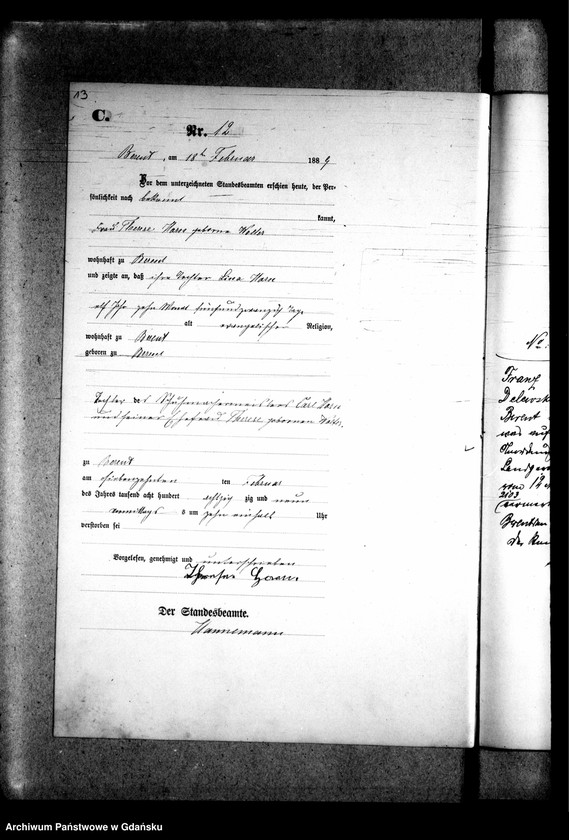 13
C.
Nr. 12
Berent, am 18t Februar 1889
Vor dem unterzeichneten Standesbeamten erschien heute, der Per-
sönlichkeit nach bekannt
kannt,
Frau Therese
wohnhaft zu Berent
und zeigte an, daß ihre Tochter Lina
elf Jahr zehn Monat fünfundzwanzig Tage
alt evangelischer Religion,
wohnhaft zu Berent
geboren zu Berent
Tochter des Schuhmachermeisters Carl
und seiner Ehefrau Therese geborenen
zu Berent
am siebenzehnten ten Februar
des Jahres tausend acht hundert achtzig zig und neun
vormittags um zehn ein halb Uhr
verstorben sei
Vorgelesen, genehmigt und unterschrieben
Der Standesbeamte.
Hannemann
No
Franz
Berent
was auf
vom 12
2103
Archiwum Państwowe w Gdańsku